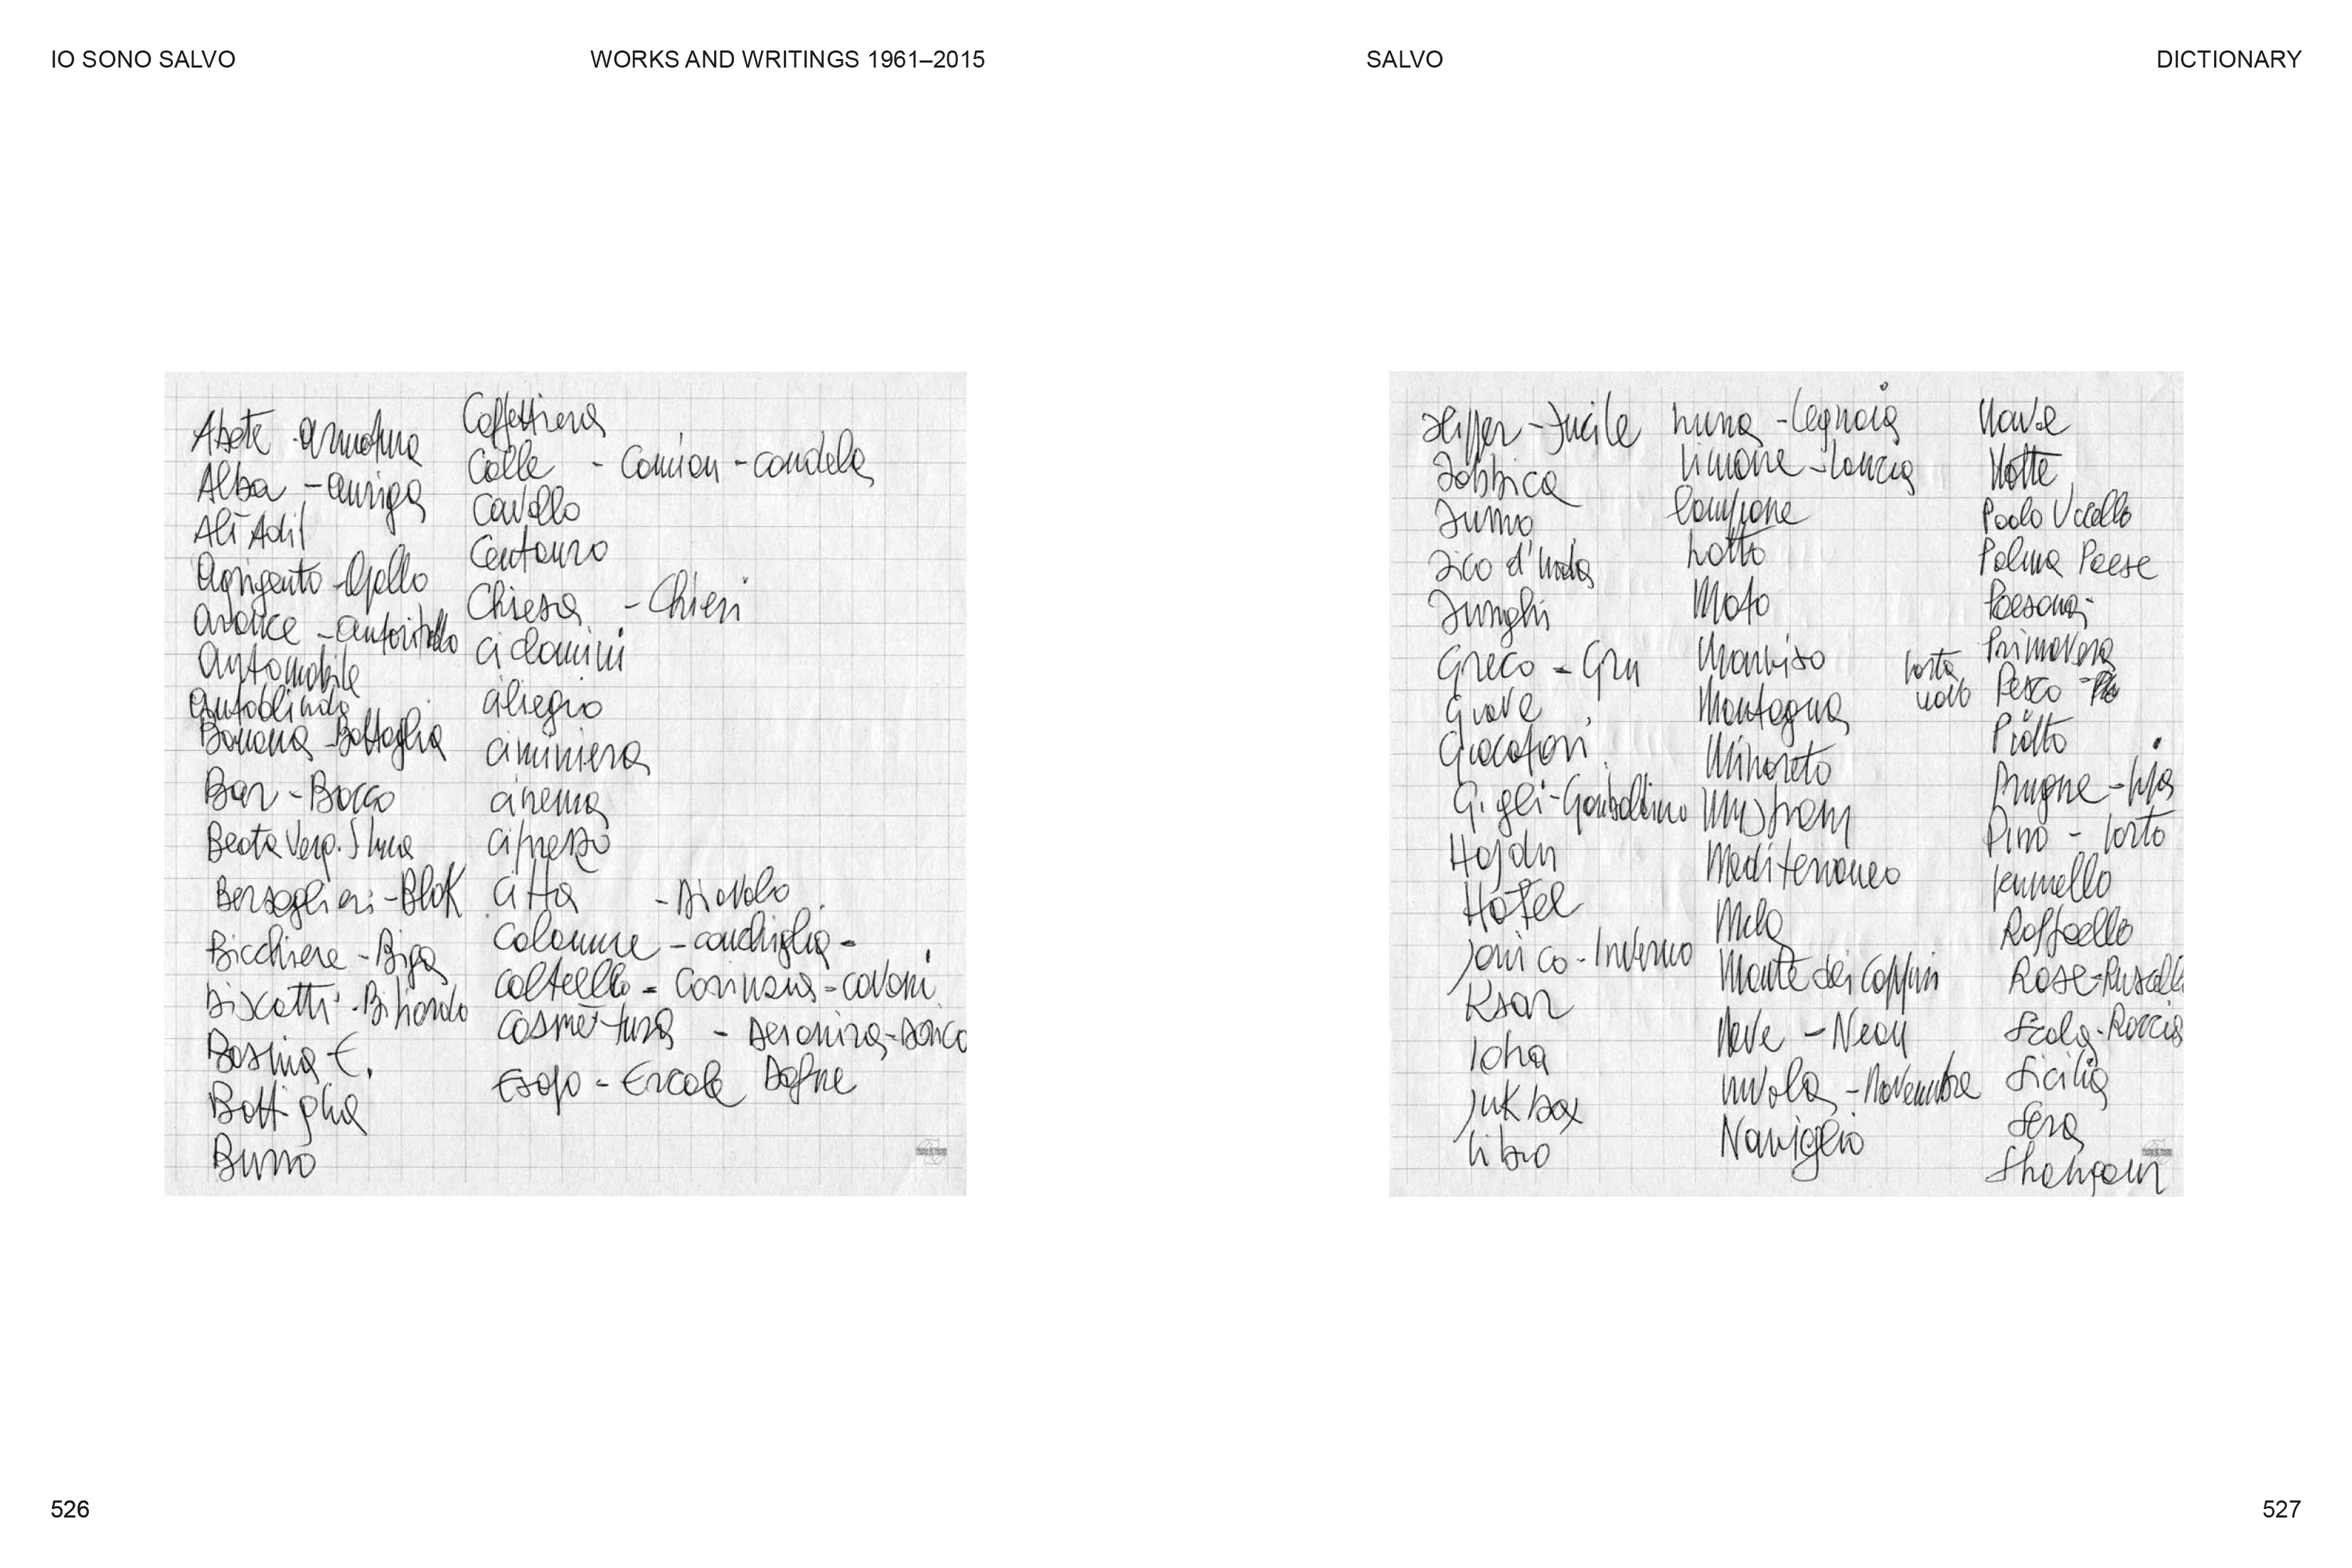 IO SONO SALVO
WORKS AND WRITINGS 1961–2015
SALVO
DICTIONARY
Abete - armatura
Alba - auriga
Alì Adil
Agrigento - Apollo
Arance - autoritratto
Automobile
Autoblindo
Banana - Battaglia
Bar - Bacco
Beata Verg. S Luca
Bersaglieri - Blok
Bicchiere - Biga
Biscotti - Biliardo
Bosnia E.
Bottiglia
Burro
Caffettiera
Calle - Camion - candela
Cavallo
Centauro
Chiesa - Chieri
ciclamini
ciliegio
ciminiera
cinema
cipresso
città - Diavolo
Colonne - conchiglia -
coltello - - cavoni
Cosmè tura - - Dorico
Esopo - Ercole Dafne
- Fucile
Fabbrica
Fumo
Fico d'India
Funghi
Greco - Gru
Giocatori
Gigli - Gambellino
Haydn
Hotel
Jonico - Inverno
Ksar
Juk box
Libro
Luna - Legnaia
Limone - Lancia
Lampione
Lotto
Moto
Monviso
Montagna
Minareto
Mediterraneo
Mela
Monte dei Cappuccini
Neve - Neon
nuvola - Novembre
Naviglio
Nave
Notte
Paolo Uccello
Palma Paese
Paesana -
Primavera
Pesco -
Piatto
Prugne -
Pino -
pennello
Raffaello
Rose - Ruscello
Scala - Roccia
Sicilia
Sera
526
527